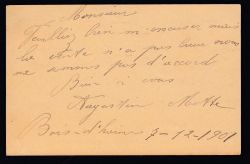 Monsieur
Veuillez bien m'excuser mais
la vente n'a pas lieu nous
ne sommes pas d'accord
Bien à vous
Augustin Motte
Bois-d'haine 7-12-1901